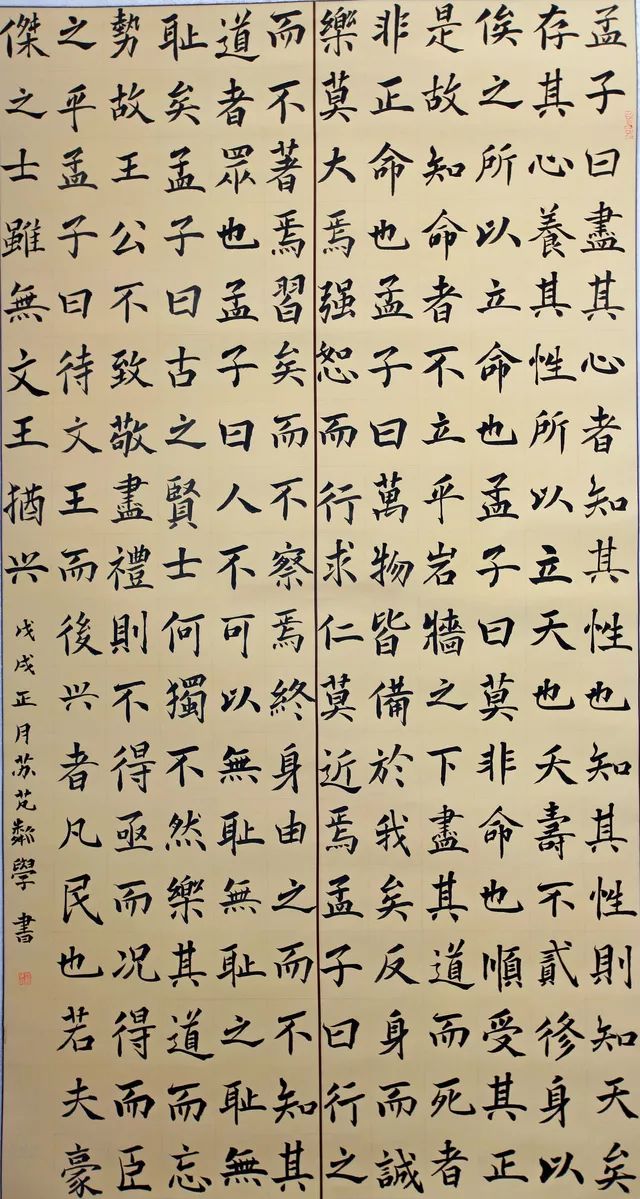 孟子曰盡其心者知其性也知其性則知天矣
存其心養其性所以立天也夭壽不貳修身以
俟之所以立命也孟子曰莫非命也順受其正
是故知命者不立乎岩牆之下盡其道而死者
非正命也孟子曰萬物皆備於我矣反身而誠
樂莫大焉强恕而行求仁莫近焉孟子曰行之
而不著焉習矣而不察焉終身由之而不知其
道者眾也孟子曰人不可以無耻無耻之耻無
耻矣孟子曰古之賢士何獨不然樂其道而忘
勢故王公不致敬盡禮則不得亟而况得而臣
之乎孟子曰待文王而後兴者凡民也若夫豪
傑之士雖無文王猶兴
戊戌正月苏芃粼學書